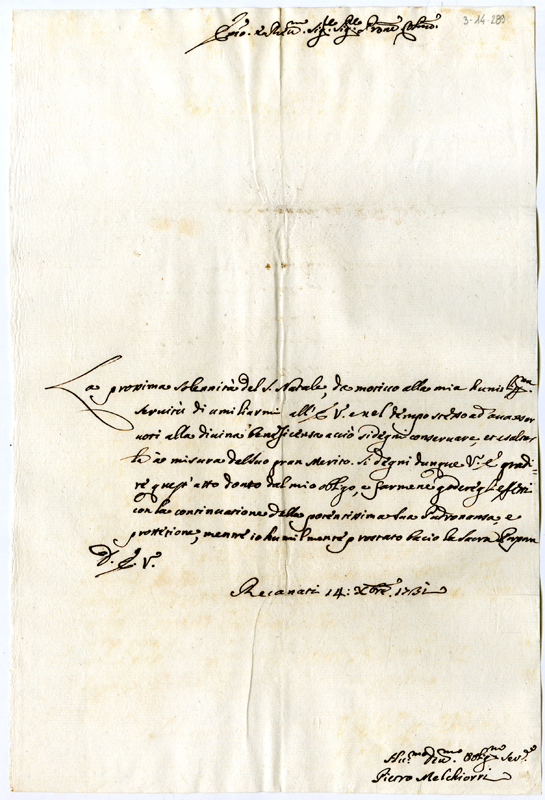 3-14-289
Sig.r Sig.r Prone Colmo.
La prossima solennità del S. Natale, da motivo alla mia humiliss.ma
servitù di umiliarmi all' E. V. e nel tempo stesso ad avanzar
voti alla divina beneficenza acciò si degni conservare, et esaltar
la à misura del suo gran Merito. Si degni dunque V. E. gradi-
re quest' atto dovuto dal mio obligo, e farmene godere gli effetti
con la continuazione della potentissima sua Padronanza, e
protezione, mentre io humilmente prostrato bacio la Sacra Porpora
D. E. V.
Recanati 14: Xbre. 1731
Hu.mo Dev.mo Obl.mo Serv.e
Pietro Melchiorri